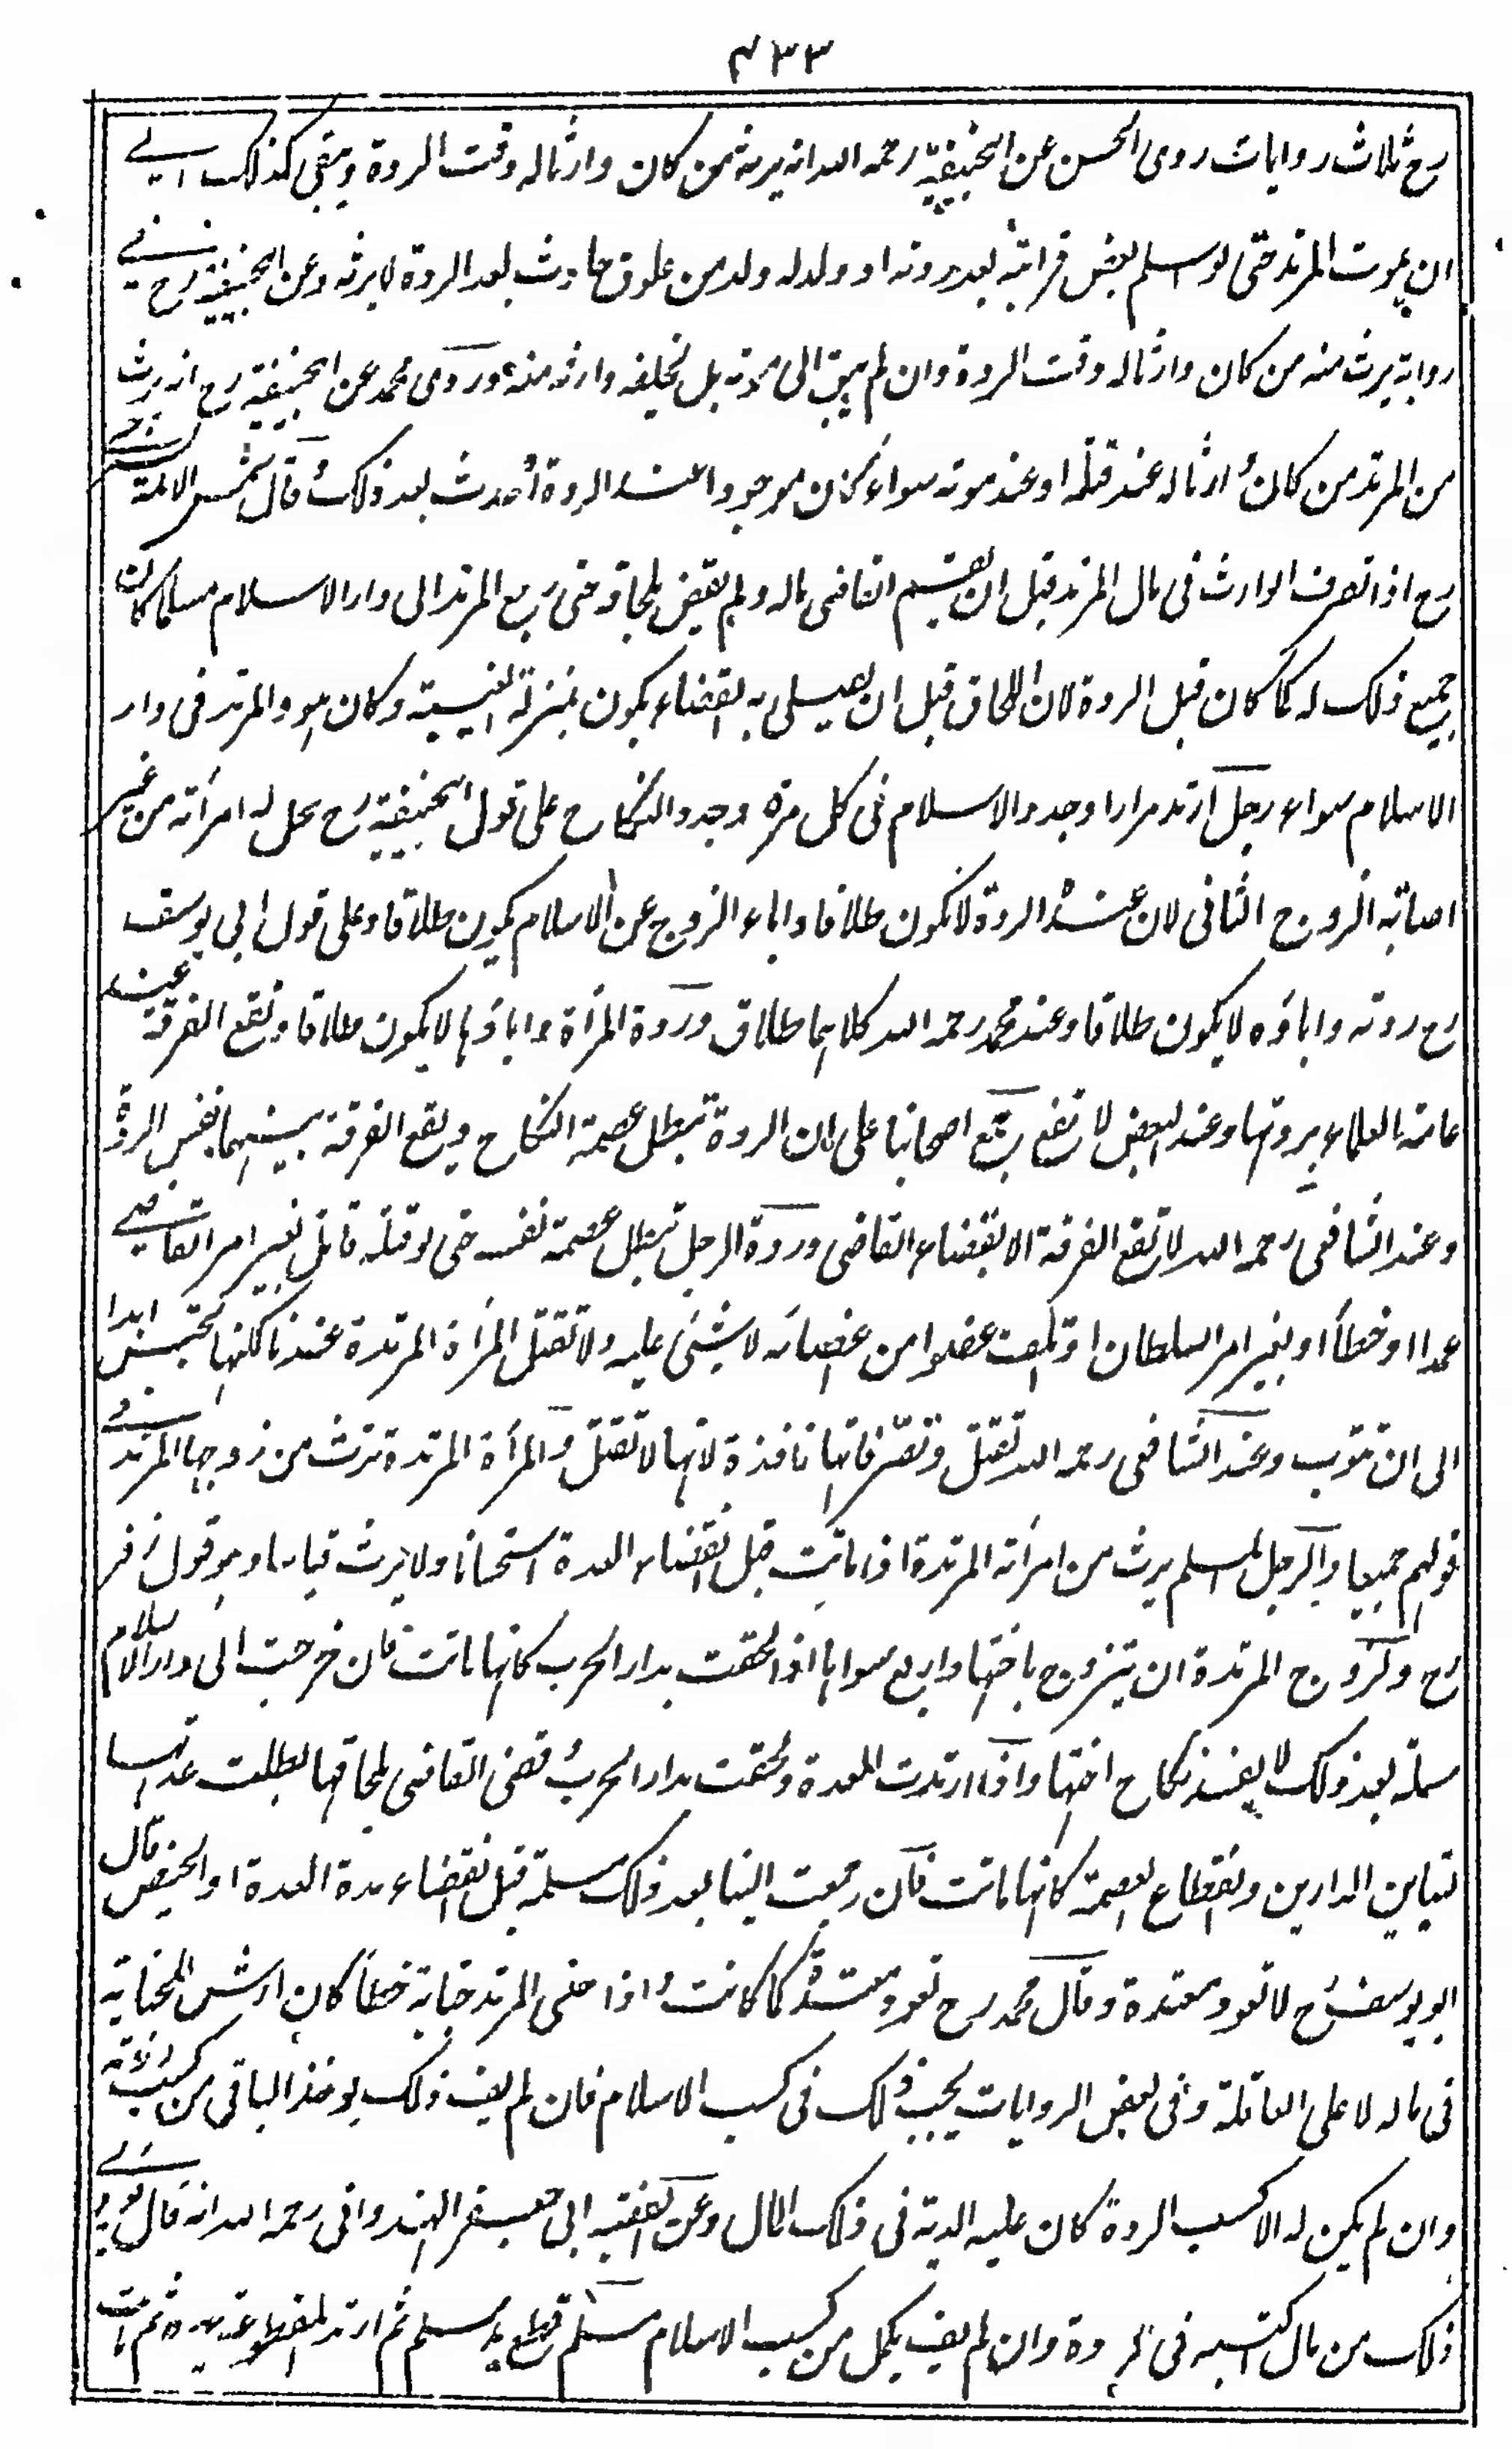 ٤٣٣
رح ثلاث روايات روى الحسن عن ابيحنيفة رحمه الله انه يرثه من كان وارثا له وقت الردة ويبقى كذلك الى
ان يموت المرتد حتى لو اسلم بعض قرابته بعد ردته او ولد له ولد من علوق حادث بعد الردة لا يرثه وعن ابيحنيفة رح في
رواية يرث منه من كان وارثا له وقت الردة وان لم يبق الى موته بل يخلفه وارثه منه وروى محمد عن ابيحنيفة رح انه يرث
من المرتد من كان وارثا له عند قتله او عند موته سواء كان موجودا عند الردة او حدث بعد ذلك قال شمس الائمة السرخسي
رح اذا تصرف الوارث فى مال المرتد قبل ان يقسم القاضى ماله ولم يقض بلحاقه حتى رجع المرتد الى دار الاسلام مسلما كان
جميع ذلك له كما كان قبل الردة لان اللحاق قبل ان يصل به القضاء يكون بمنزلة الغيبة وكان هو والمرتد فى دار
الاسلام سواء رجل ارتد مرارا وجدد الاسلام فى كل مرة وجدد النكاح على قول ابيحنيفة رح يحل له امرأته من غير
اصابة الزوج الثانى لان عنده الردة لا تكون طلاقا واباء الزوج عن الاسلام يكون طلاقا وعلى قول ابي يوسف
رح ردته واباؤه لا يكون طلاقا وعند محمد رحمه الله كلاهما طلاق وردة المرأة واباؤها لا يكون طلاقا وتقع الفرقة عند
عامة العلماء بردتها وعند البعض لا تقع رجع اصحابنا على ان الردة تبطل عصمة النكاح ويقع الفرقة بينهما بنفس الردة
وعند الشافعى رحمه الله لا تقع الفرقة الا بقضاء القاضى وردة الرجل تبطل عصمة نفسه حتى لو قتله قاتل بغير امر القاضى
عمدا او خطأ او بغير امر السلطان او تلف عضوا من اعضائه لا شيئ عليه ولا تقتل المرأة المرتدة عندنا لكنها تحبس ابدا
الى ان تتوب وعند الشافعى رحمه الله تقتل وتصرفاتها نافذة لانها لا تقتل والمرأة المرتدة ترث من زوجها المرتد فى
قولهم جميعا والرجل المسلم يرث من امرأته المرتدة اذا ماتت قبل انقضاء العدة استحسانا ولا يرث قياسا وهو قول زفر
رح ولزوج المرتدة ان يتزوج باختها واربع سواها اذا لحقت بدار الحرب كانها ماتت فان خرجت الى دار الاسلام
مسلمة بعد ذلك لا يفسد نكاح اختها واذا ارتدت المعتدة ولحقت بدار الحرب وقضى القاضى بلحاقها بطلت عدتها
لتباين الدارين وانقطاع العصمة كانها ماتت فان رجعت الينا بعد ذلك مسلمة قبل انقضاء مدة العدة او الحيض قال
ابو يوسف رح لا تعود معتدة وقال محمد رح تعود معتدة كما كانت واذا جنى المرتد جناية خطأ كان ارش الجناية
فى ماله لا على العاقلة وفى بعض الروايات يجب ذلك فى كسب الاسلام فان لم يف ذلك يوخذ الباقى من كسب ردته
وان لم يكن له الا كسب الردة كان عليه الدية فى ذلك المال وعن الفقيه ابى جعفر الهندوانى رحمه الله انه قال يؤدى
ذلك من مال اكتسبه فى الردة وان لم يف يكمل من كسب الاسلام مسلم قطع يد مسلم ثم ارتد المقطوعة يده ثم مات